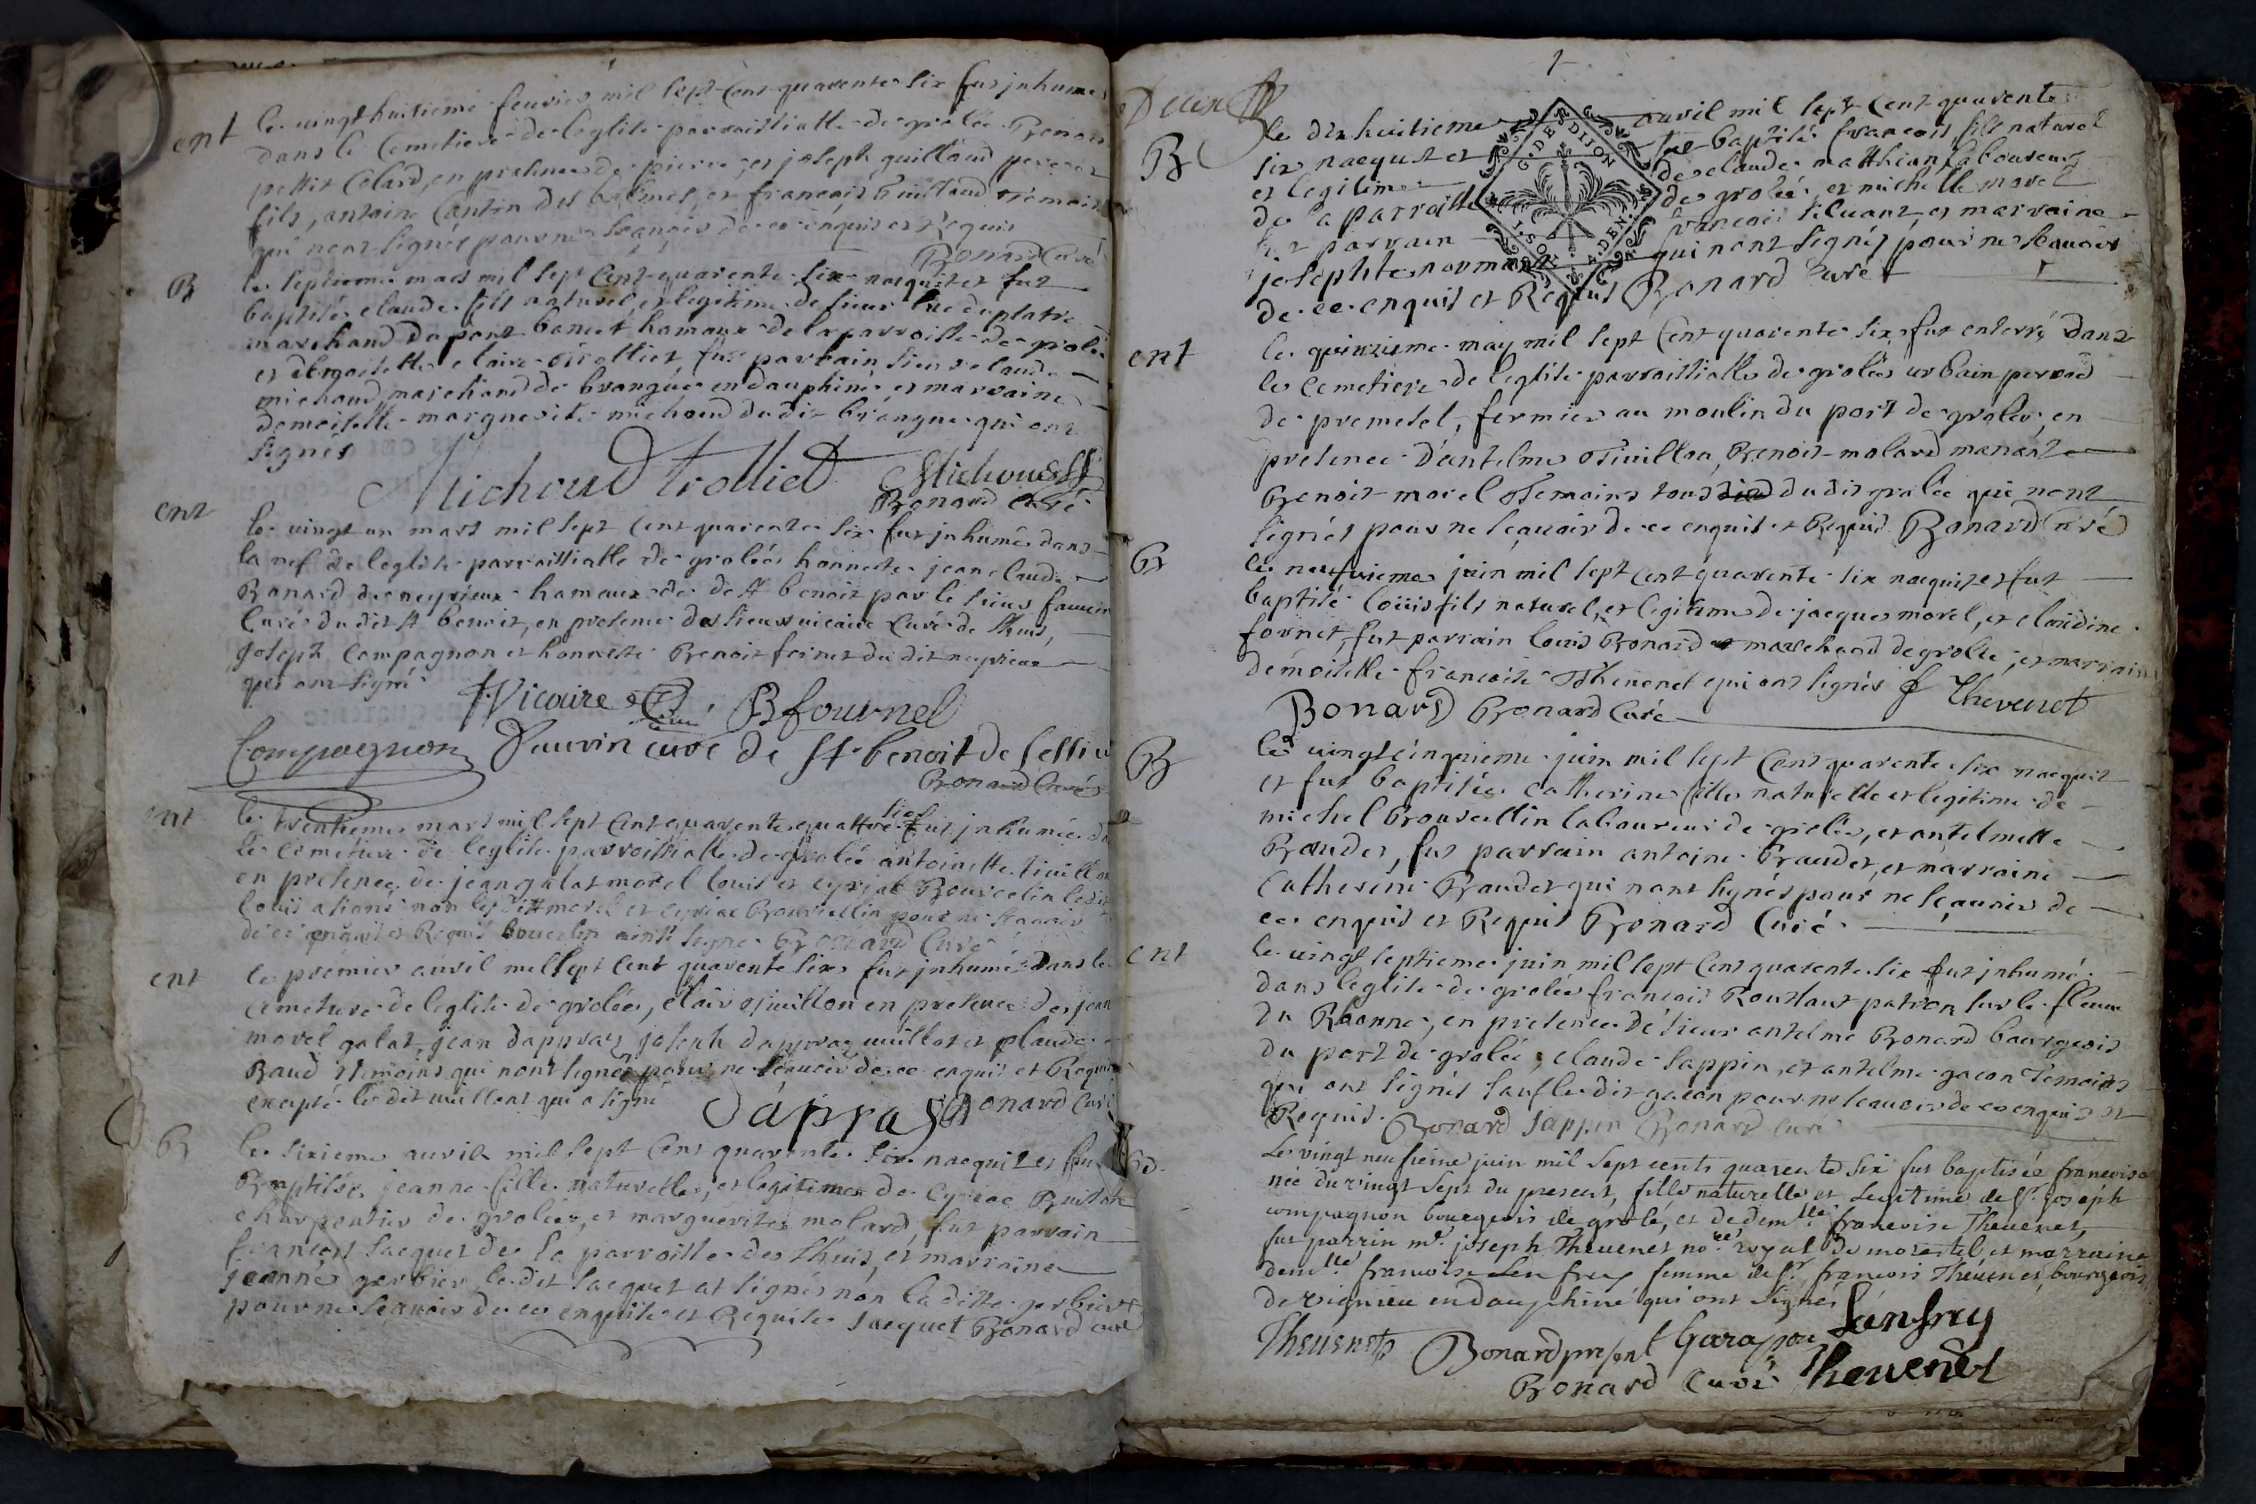 ent
le vingt huitieme feurier mil sept cent quarente six fut jnhumé
dans le cemetiere de leglise parroissialle de grolée Benois
pettit Colard, en presence de pierre, et joseph guilland pere et
fils, antoine Cantin des balmes, et francois Guilland temoins
qui nont signés pour ne scauoir de ce enquis et requis
Bonard Curé
B
le septieme mars mil sept cent quarente six nacquit et fut
baptisé claude fils naturel, et legitime de sieur luc duplatre
marchand du port bancet hamaux de la parroisse de grolée
et demoiselle claire trolliet fut parrain sieur claude
michoud marchand de brangue en dauphiné et marraine
demoiselle marguerite michoud dudit brangue qui ont
signés
Michoud trolliet Michoud
Bonard curé
ent
le vingt un mars mil sept cent quarente six fut jnhumé dans
la nef de leglise parroissialle de grolée honneste jean claude
Bonard de neyrieux hamaux de St benoit par le sieur fauvin
Curé du dit St benoit, en presence des sieurs vicaire Curé de lhuis,
joseph Compagnon et honneste Benoit fornet du dit neyrieux
qui ont signé
Vicaire Curé B fournel
Compagnon fauvin curé de St benoit de Cessieu
Bonard Curé
ent
le trentieme mars mil sept cent quarente quattre six fut jnhumée dans
le cemetiere de leglise parroissialle de grolée antoinette tivillon
en presence de jean galat morel louis et cyriac Bourcelin ledit
Louis a signé non les dit morel et cyriac Bourcellin pour ne scauoir
de ce enquis et Requis bourcelin ainsi signé Bonard Curé
ent
le premier auril mil sept cent quarente six fut jnhumé dans le
cemetiere de leglise de grolée, clair tiuillon en presence de jean
morel galat jean dappraz joseph dappraz uuillot et plaude
Baud temoins qui nont signés pour ne scauoir de ce enquis et Requis
excepté le dit uuillot qui a signé
Dapraz Bonard Curé
B
le sixieme auril mil sept cent quarente six nacquit et fut
Baptisée jeanne fille naturelle, et legitime de Cyriac
charpentier de grolée, et marguerite molard, fut parrain
francois Jacquet de la parroisse de lhuis, et marraine
jeanne gerbier, le dit Jacquet at signés non la ditte gerbier
pour ne scauoir de ce enquise et Requise Jacquet Bonard curé
1
Deux ss
G. DE DIJON
SOL
B
le dix huitieme auril mil sept cent quarente
six nacquit et fut baptisé francois fils naturel
et legitime de claude matthian laboureur
de la parroisse de grolée et michelle morel
fut parrain francois siluant et marraine
josephte normand qui nont signés pour ne scauoir
de ce enquis et Requis Bonard Curé
ent
le quinzieme may mil sept cent quarente six fut enterré dans
le cemetiere de leglise parroissialle de grolée urbain perrod
de premesel, fermier au moulin du port de grolée, en
presence dantelme tiuillon, Benoit molard manant
Benoit morel temoins tous dudit grolée qui nont
signés pour ne scauoir de ce enquis et Requis Bonard Curé
B
le neufuieme juin mil sept cent quarente six nacquit et fut
baptisé Loüis fils naturel, et legitime de jacques morel, et claudine
fornet, fut parrain louis Bonard marchand de grolée, et marraine
demoiselle francoise Theuenet qui ont signés f Thevenet
Bonard Bonard Curé
B
le vingtcinquieme juin mil sept cent quarente six nacquit
et fut baptisée catherine fille naturelle et legitime de
michel bourcellin laboureur de grolée, et antelmette
Baudet, fut parrain antoine Baudet, et marraine
catherine Baudet qui nont signés pour ne scauoir de
ce enquis et Requis Bonard Curé
ent
le vingt septieme juin mil sept cent quarente six fut jnhumé
dans leglise de grolée francois Roustant patron sur le fleuue
du Rhonne, en presence de sieur antelme Bonard bourgeois
du port de grolée, claude Sappin et antelme gacon temoins
qui ont signés sauf le dit gacon pour ne scauoir de ce enquis et
Requis. Bonard Sappin Bonard Curé
B.
Le vingt neufieme juin mil sept cents quarente six fut baptisée francoise
née du vingt sept du present, fille naturelle et legitime de sr. joseph
compagnon bourgeois de grolé, et de demlle francoise Theuenet,
fut parrin mr. joseph Theuenet nore royal de morestel et marraine
demlle francoise Lenfrey femme de sr francois Theuenet, bourgeois
de vignieu en dauphiné qui ont signés
Theuenet Bonard present Garapon Lanfrey
Bonard Curé Theuenet